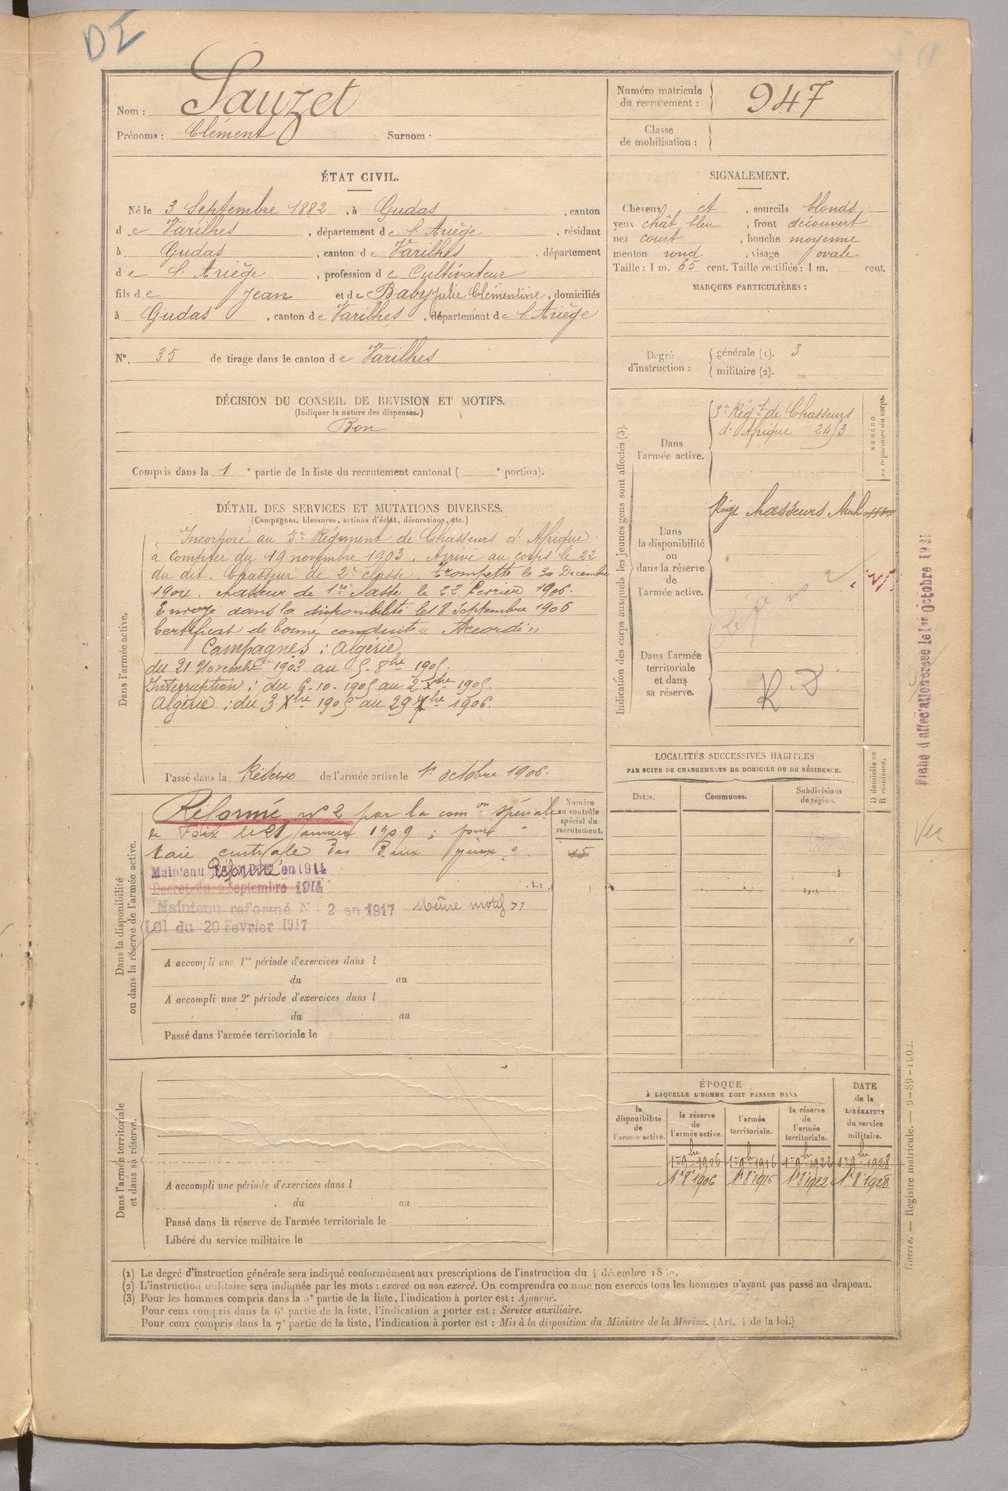 DI
Nom : Sauzet
Prénoms : Clément Surnom :
Numéro matricule du recrutement : 947
Classe de mobilisation :
ÉTAT CIVIL.
Né le 3 Septembre 1882, à Gudas, canton
de Varilhes, département de l'Ariège, résidant
à Gudas, canton de Varilhes, département
de l'Ariège, profession de Cultivateur
fils de Jean et de Baby Julie Clémentine, domiciliés
à Gudas, canton de Varilhes, département de l'Ariège
N° 35 de tirage dans le canton de Varilhes
SIGNALEMENT.
Cheveux et, sourcils blonds
yeux chât bleu, front découvert
nez court, bouche moyenne
menton rond, visage ovale
Taille : 1 m. 65 cent. Taille rectifiée : 1 m. cent.
MARQUES PARTICULIÈRES :
Degré d'instruction : générale (1). 3
militaire (2).
DÉCISION DU CONSEIL DE REVISION ET MOTIFS.
(Indiquer la nature des dispenses.)
Bon
Compris dans la 1e partie de la liste du recrutement cantonal ( e portion).
DÉTAIL DES SERVICES ET MUTATIONS DIVERSES.
(Campagnes, blessures, actions d'éclat, décorations, etc.)
Dans l'armée active.
Incorporé au 5e Régiment de Chasseurs d'Afrique
à compter du 19 novembre 1903. Arrivé au corps le 22
du dit. Chasseur de 2e classe. Trompette le 30 Décembre
1904. Chasseur de 1re classe le 22 Février 1906.
Envoyé dans la disponibilité le 18 Septembre 1906
Certificat de bonne conduite « Accordé »
Campagnes : Algérie
du 21 Novembre 1903 au 5-8bre 1905.
Interruption : du 6-10-1905 au 2 Xbre 1905
Algérie : du 3 Xbre 1905 au 29 7bre 1906.
Passé dans la Réserve de l'armée active le 1er octobre 1906.
Indication des corps auxquels les jeunes gens sont affectés (3).
Dans l'armée active.
5e Régt de Chasseurs
d'Afrique 2413
NUMÉRO au répertoire du corps.
Dans la disponibilité ou dans la réserve de l'armée active.
Chasseurs
Dans l'armée territoriale et dans sa réserve.
R.D
Fiche d'affectation créée le 1er Octobre 1921
Vu
Dans la disponibilité ou dans la réserve de l'armée active.
Réformé n° 2 par la comon spéciale
de Foix le 21 janvier 1909 ; pour
taie centrale des deux yeux
Numéro au contrôle spécial du recrutement.
15
Maintenu Réformé en 1914
Décret du 9 Septembre 1914
Maintenu reformé N° 2 en 1917 Même motif »
LOI du 20 Fevrier 1917
A accompli une 1re période d'exercices dans l
du au
A accompli une 2e période d'exercices dans l
du au
Passé dans l'armée territoriale le
LOCALITÉS SUCCESSIVES HABITÉES
PAR SUITE DE CHANGEMENTS DE DOMICILE OU DE RÉSIDENCE.
Dates. Communes. Subdivisions de région. D domicile ou R résidence.
Dans l'armée territoriale et dans sa réserve.
A accompli une période d'exercices dans l
du au
Passé dans la réserve de l'armée territoriale le
Libéré du service militaire le
ÉPOQUE
À LAQUELLE L'HOMME DOIT PASSER DANS
la disponibilité de l'armée active.
la réserve de l'armée active.
l'armée territoriale.
la réserve de l'armée territoriale.
DATE de la LIBÉRATION du service militaire.
1er 9bre 1906 1er 9bre 1916 1er 9bre 1922 1er 9bre 1928
1er 8 1906 1er 8 1916 1er 8 1922 1er 8 1928
Guerre. — Registre matricule. — 9-89-1902.
(1) Le degré d'instruction générale sera indiqué conformément aux prescriptions de l'instruction du 4 décembre
(2) L'instruction militaire sera indiquée par les mots : exercé ou non exercé. On comprendra comme non exercés tous les hommes n'ayant pas passé au drapeau.
(3) Pour les hommes compris dans la 5e partie de la liste, l'indication à porter est : Ajourné.
Pour ceux compris dans la 6e partie de la liste, l'indication à porter est : Service auxiliaire.
Pour ceux compris dans la 7e partie de la liste, l'indication à porter est : Mis à la disposition du Ministre de la Marine. (Art. 4 de la loi.)